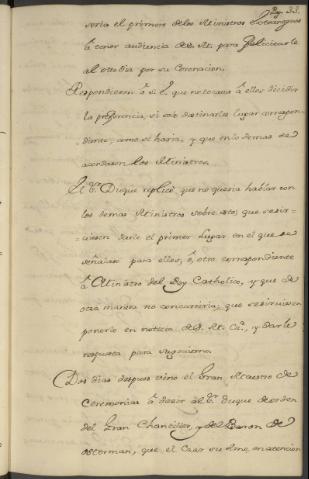 Pag. 33.
seria el primero de los Ministros Estrangeros
à tener audiencia de S. M. para felicitarle
al otro dia por su Coronacion.
Respondieron à S. E. que no tocava à ellos decidir
la preferencia, si solo destinarle lugar correspon
diente, como se haria, y que en lo demas se
acordasen los Ministros.
El Sr. Duque replicò, que no queria hablar con
los demas Ministros sobre esto, que se sir-
viesen darle el primer lugar en el que se
señalase para ellos, ò otro correspondiente
à Ministro del Rey Catholico, y que de
otra manera no concurriria; que se sirviesen
ponerlo en noticia de S. M. Cz.ª, y darle
respuesta para su govierno.
Dos dias despues vino el Gran Maestro de
Ceremonias à decir al Sr. Duque de orden
del Gran Chanciller, y del Baron de
Osterman, que el Czar su Amo, en atencion